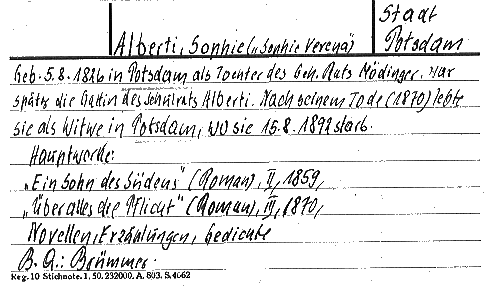 Stadt
Alberti, Sophie („Sophie Verena") Potsdam
Geb. 5.8.1826 in Potsdam als Tochter des Geh. Rats Mödinger. War
später die Gattin des Schulrats Alberti. Nach seinem Tode (1870) lebte
sie als Witwe in Potsdam, wo sie 15.8.1892 starb.
Hauptwerke:
„Ein Sohn des Südens" (Roman), II, 1859,
„Über alles die Pflicht" (Roman), III, 1870,
Novellen, Erzählungen, Gedichte
B. Q.: Brümmer.
Reg. 10 Stichnote. 1, 50. 232000. A. 803. S. 4662